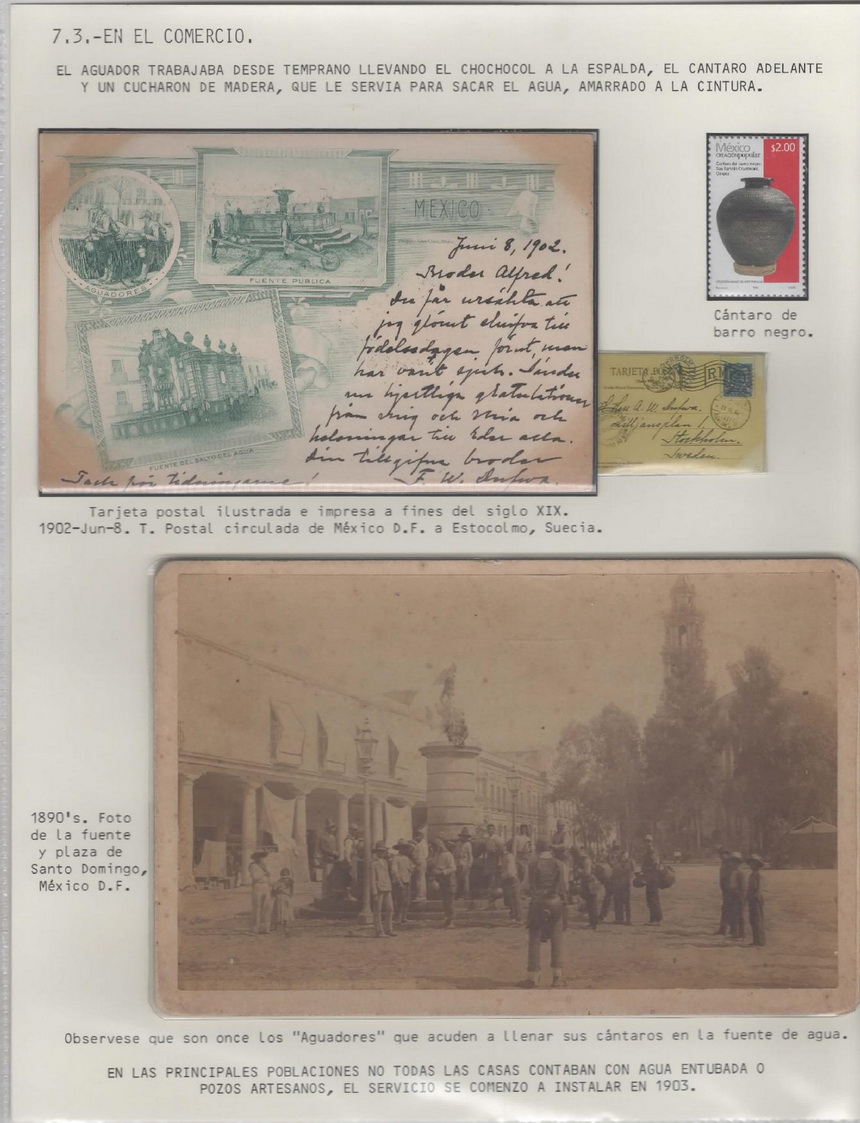 7.3.-EN EL COMERCIO.
EL AGUADOR TRABAJABA DESDE TEMPRANO LLEVANDO EL CHOCHOCOL A LA ESPALDA, EL CANTARO ADELANTE
Y UN CUCHARON DE MADERA, QUE LE SERVIA PARA SACAR EL AGUA, AMARRADO A LA CINTURA.
MEXICO
AGUADORES
FUENTE PUBLICA
FUENTE DEL SALTO DEL AGUA
Juni 8, 1902.
Broder Alfred!
Du får ursäkta att
jag glömt skrifva till
födelsedagen förut, men
har varit sjuk. Sänder
nu hjertliga gratulationer
från mig och Maria och
helsningar till Eder alla.
Din tillgifne broder
F. W.
Tack för tidningarne!
México
creaciónpopular
$2.00
Cántaro de barro negro
Cántaro de
barro negro.
TARJETA
A. W.
Lilljansplan 1,
Stockholm.
Sweden.
Tarjeta postal ilustrada e impresa a fines del siglo XIX.
1902-Jun-8. T. Postal circulada de México D.F. a Estocolmo, Suecia.
1890's. Foto
de la fuente
y plaza de
Santo Domingo,
México D.F.
Observese que son once los "Aguadores" que acuden a llenar sus cántaros en la fuente de agua.
EN LAS PRINCIPALES POBLACIONES NO TODAS LAS CASAS CONTABAN CON AGUA ENTUBADA O
POZOS ARTESANOS, EL SERVICIO SE COMENZO A INSTALAR EN 1903.